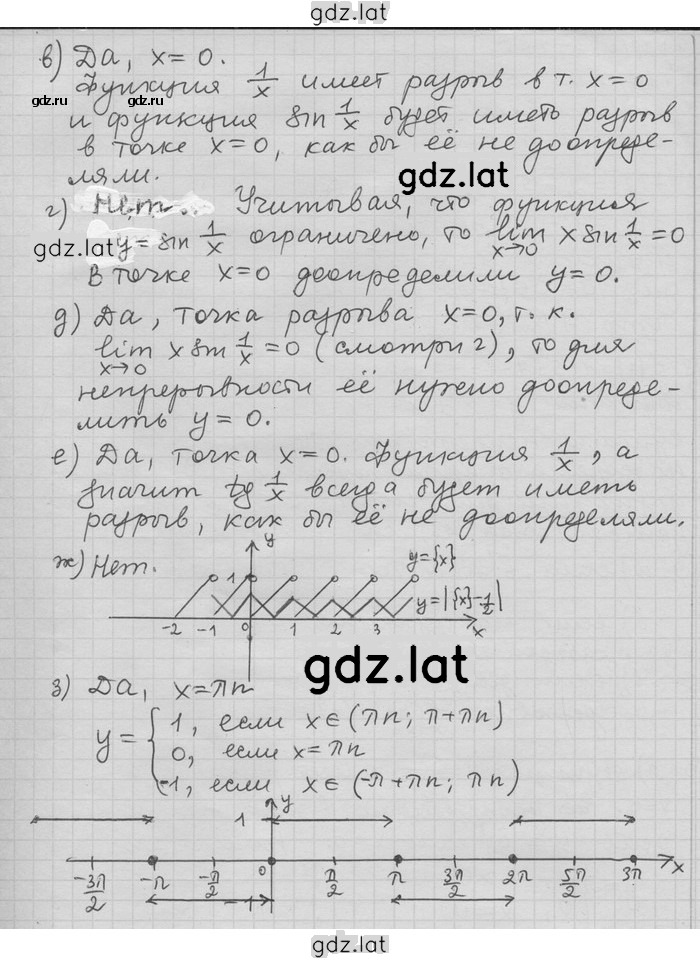 gdz.lat
в) Да, x = 0.
Функция 1/x имеет разрыв в т. x = 0
gdz.ru gdz.ru
и функция sin 1/x будет иметь разрыв
в точке x = 0, как бы её не доопреде-
ляли.
gdz.lat
г) Нет. Учитывая, что функция
gdz.lat y = sin 1/x ограничено, то lim x→0 x sin 1/x = 0
в точке x=0 доопределили y = 0.
д) Да, точка разрыва x = 0, т. к.
lim x→0 x sin 1/x = 0 (смотри г), то для
непрерывности её нужно доопреде-
лить y = 0.
е) Да, точка x = 0. Функция 1/x, а
значит tg 1/x всегда будет иметь
разрыв, как бы её не доопределяли.
ж) Нет.
y y={x}
1
y=|{x}-1/2|
-2 -1 0 1 2 3 x
gdz.lat
з) Да, x = πn
y = { 1, если x∈(πn; π+πn)
0, если x = πn
-1, если x∈(-π+πn; πn)
1 y
-3π/2 -π -π/2 0 π/2 π 3π/2 2π 5π/2 3π x
-1
gdz.lat